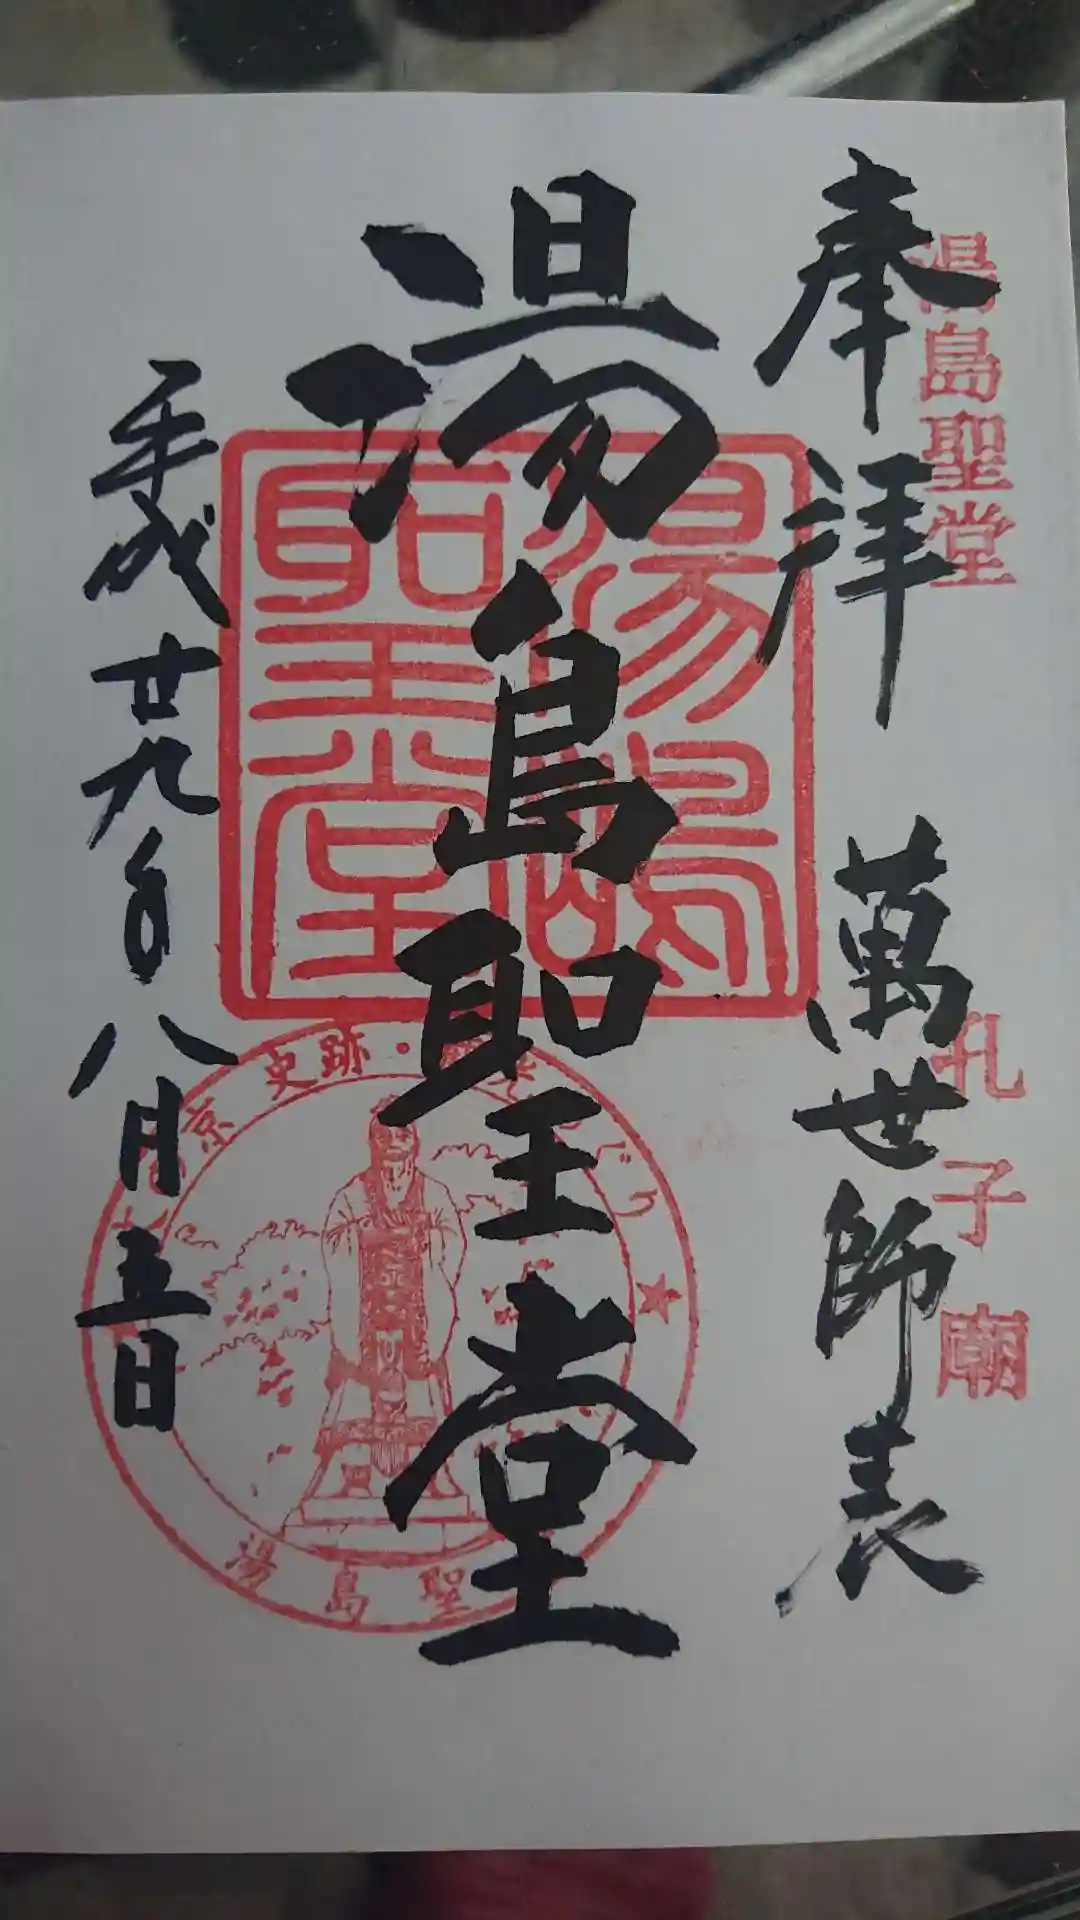 湯島聖堂
孔子廟
奉拝 萬世師表
湯島聖堂
平成廿九年八月五日
湯島聖堂
史跡・
湯島聖